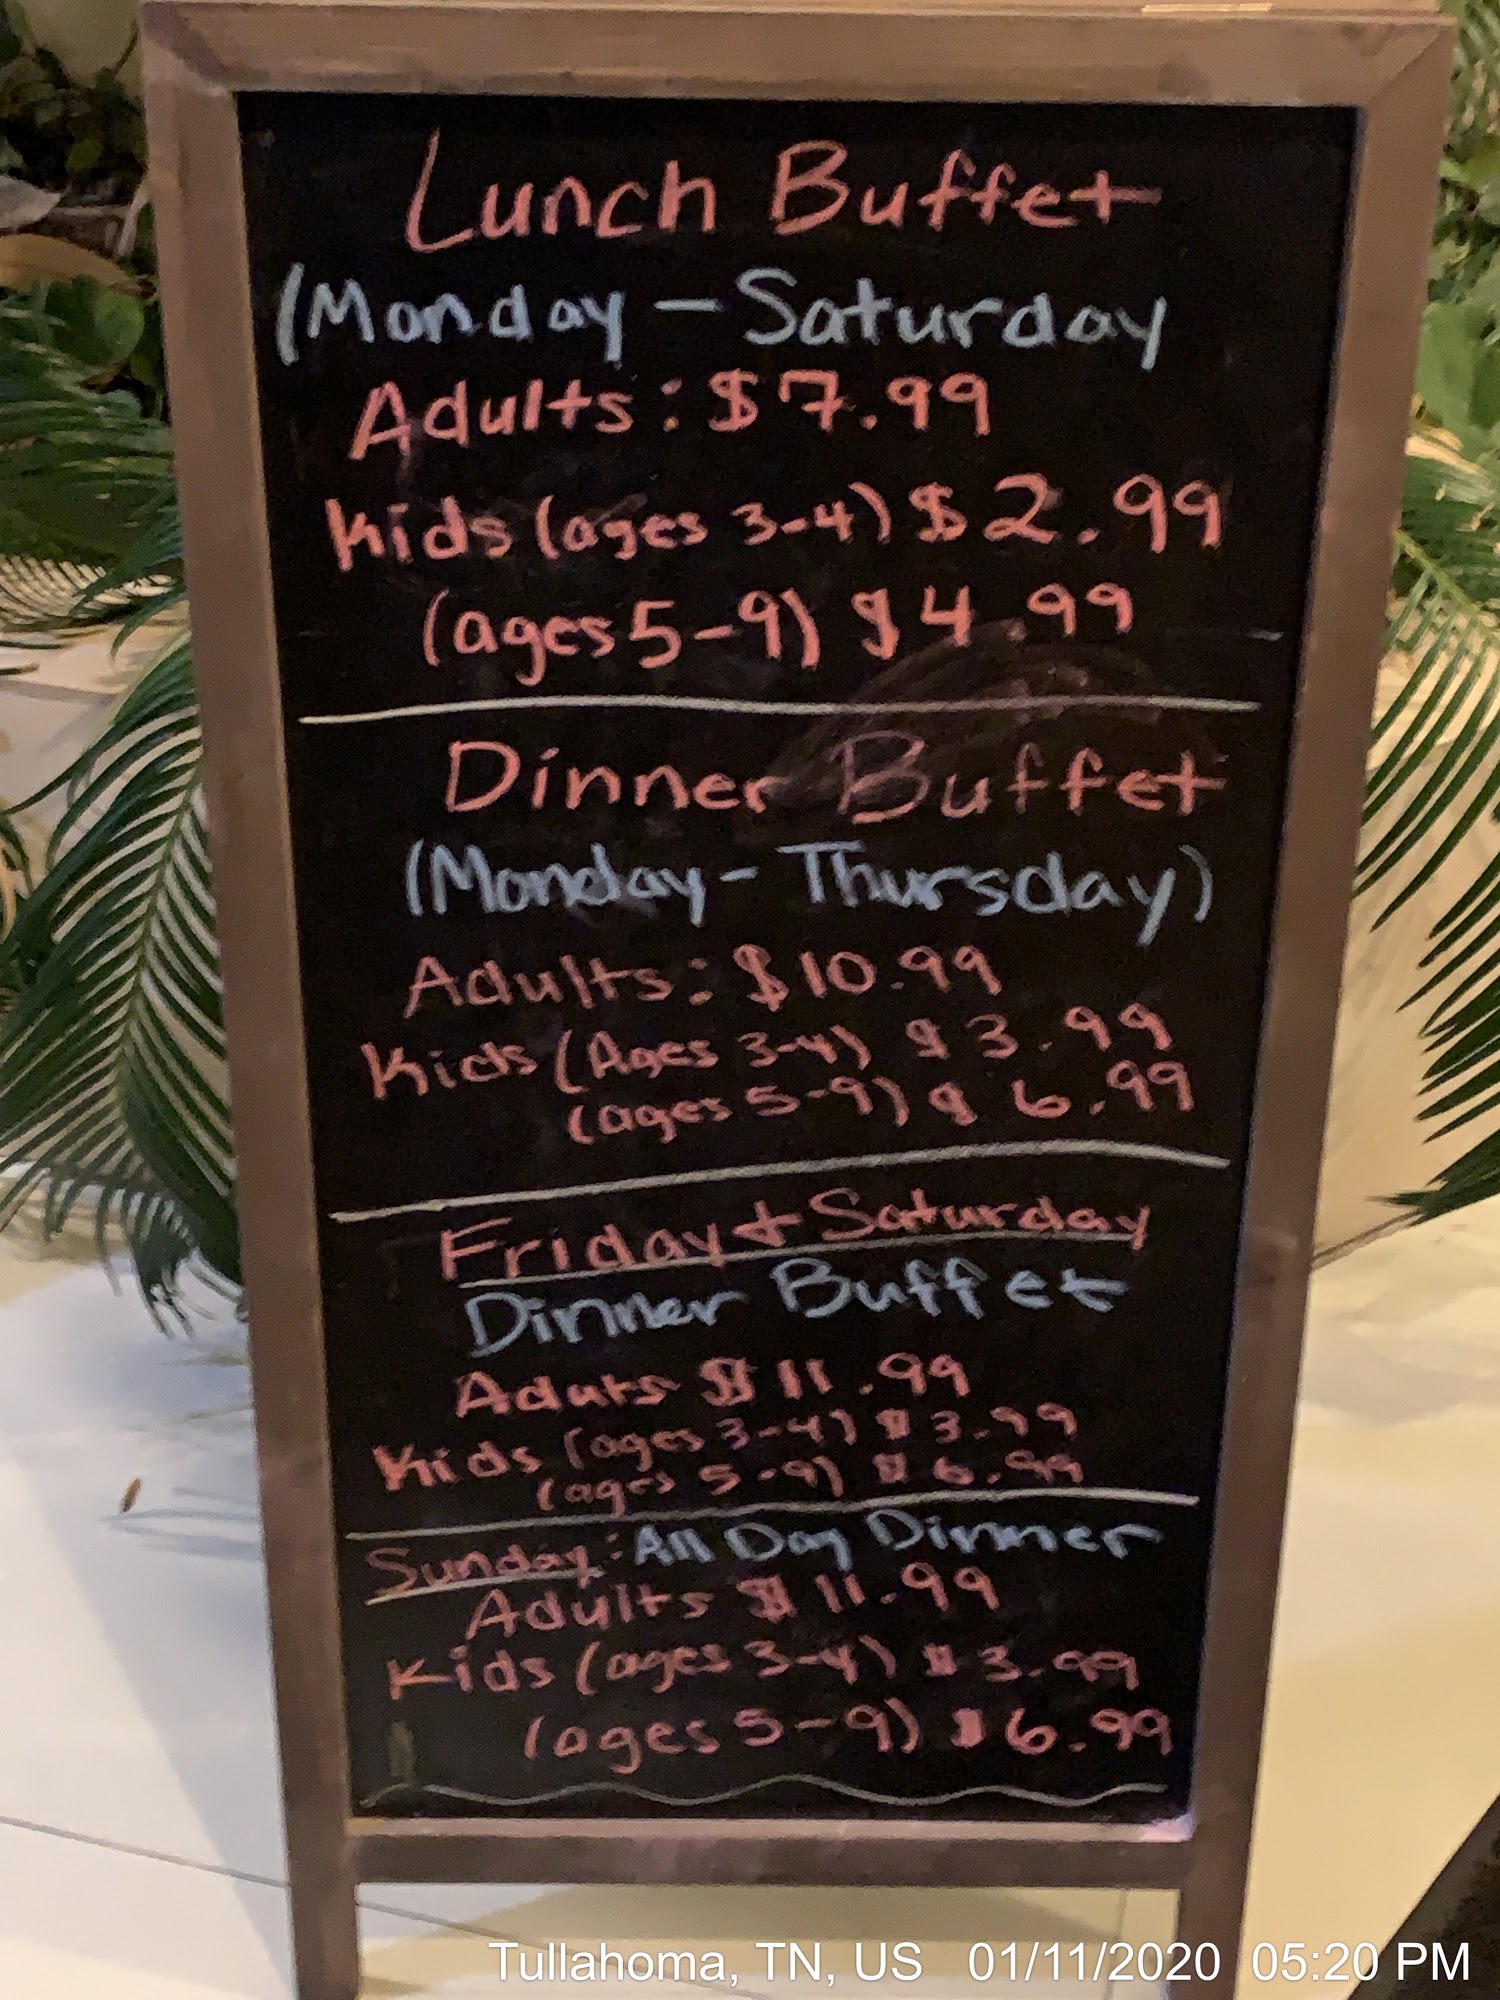 Lunch Buffet
(Monday - Saturday
Adults: $7.99
Kids (ages 3-4) $2.99
(ages 5-9) $4.99
Dinner Buffet
(Monday - Thursday)
Adults: $10.99
Kids (Ages 3-4) $3.99
(ages 5-9) $6.99
Friday + Saturday
Dinner Buffet
Adults $11.99
Kids (ages 3-4) $3.99
(ages 5-9) $6.99
Sunday: All Day Dinner
Adults $11.99
Kids (ages 3-4) $3.99
(ages 5-9) $6.99
Tullahoma, TN, US 01/11/2020 05:20 PM